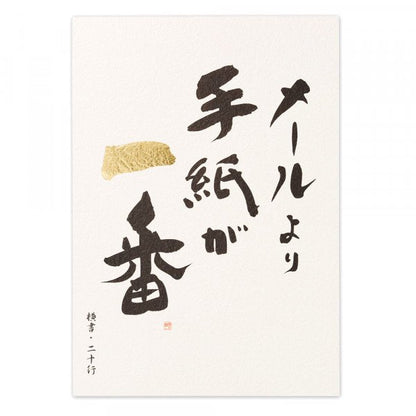 メールより
手紙が
一番
横書・二十行